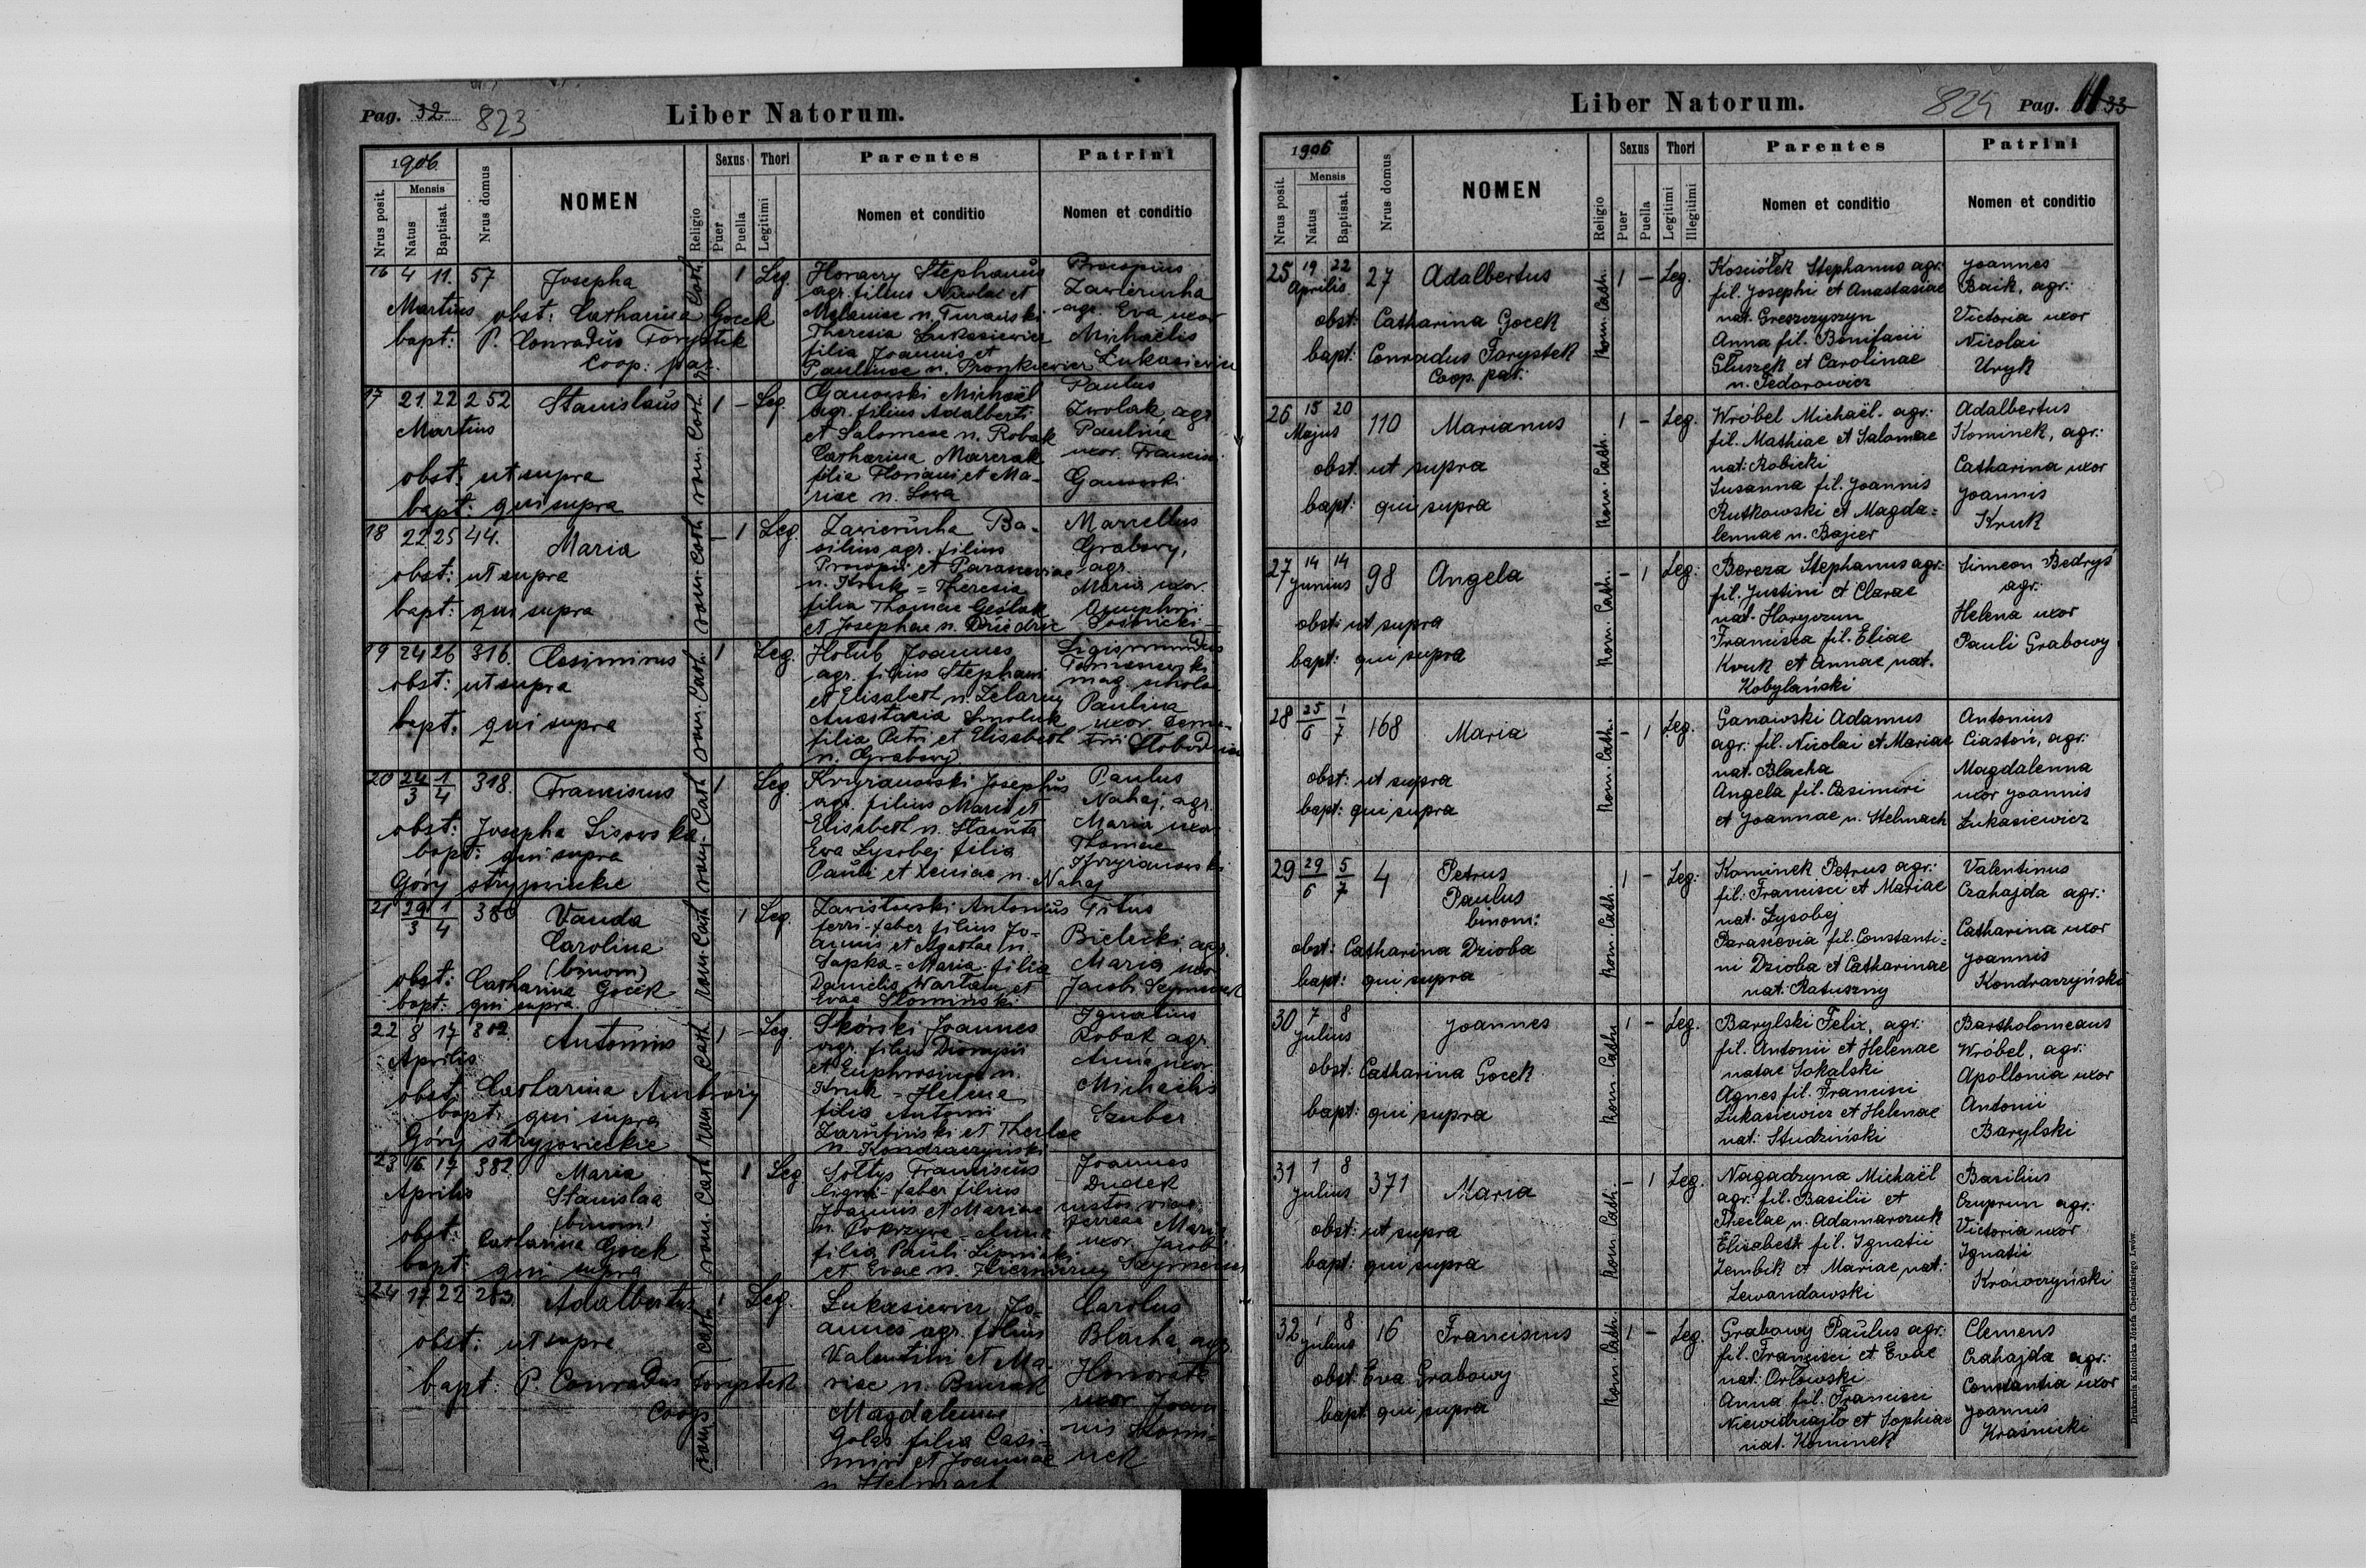 Pag. 32 823
Liber Natorum.
1906.
Nrus posit.
Mensis
Natus
Baptisat.
Nrus domus
NOMEN
Religio
Sexus
Puer
Puella
Thori
Legitimi
Parentes
Nomen et conditio
Patrini
Nomen et conditio
16 4 11. 57 Josepha rom. Cath. 1 Leg.
Martius obst: Catharina Gocek
bapt: P. Conradus Forystek
Coop. par.
Horaczy Stephanus
agr. filius Nicolai et
Melaniae n. Turański
Theresia Łukasiewicz
filia Joannis et
Paulinae n. Pronkiewicz
Procopius
Zawierucha
agr. Eva uxor
Michaelis
Łukasiewicz
17 21. 22 252 Stanislaus rom. Cath. 1 - Leg.
Martius
obst: ut supra
bapt: qui supra
Ganowski Michaël
agr. filius Adalberti
et Salomeae n. Robak
Catharina Marczak
filia Floriani et Ma-
riae n. Sowa
Paulus
Zwolak agr.
Paulina
uxor Francisci
Ganowski
18 22. 25 44. Maria rom. Cath. - 1 Leg.
obst: ut supra
bapt: qui supra
Zawierucha Ba-
silius agr. filius
Procopii et Parasceviae
n. Kruk = Theresia
filia Thomae Geślak
et Josephae n. Dziedzic
Marcellus
Grabowy,
agr.
Maria uxor
Onuphrii
Łośnicki
19 24 26 316. Casimirus rom. Cath. 1 Leg.
obst: ut supra
bapt: qui supra
Hołub Joannes
agr. filius Stephani
et Elisabeth n. Zelazny
Anastasia Smoluk
filia Petri et Elisabeth
n. Grabowy
Sigismundus
Tomaszewski
mag. schola
Paulina
uxor Deme-
trii Słobodzian
20 24/3 1/4 318. Franciscus rom. Cath. 1 Leg.
obst: Josepha Lisowska
bapt: qui supra
Góry stryjowieckie
Krzyżanowski Josephus
agr. filius Marci et
Elisabeth n. Stasiuta
Eva Łysobej filia
Pauli et Xeniae n. Nahaj
Paulus
Nahaj, agr.
Maria uxor
Thomae
Krzyżanowski
21 29/3 1/4 380 Vanda rom. Cath. 1 Leg.
Carolina
(binom)
obst: Catharina Gocek
bapt: qui supra.
Zawistowski Antonius
ferri-faber filius Jo-
annis et Agathae n.
Sapka = Maria filia
Danielis Wartan et
Evae Słomiński
Titus
Bielecki agr.
Maria uxor
Jacobi Szymczuk
22 8 17 312. Antonius rom. Cath. 1 - Leg.
Aprilis
obst: Catharina Ambroży
bapt: qui supra
Góry stryjowieckie
Skórski Joannes
agr. filius Dionysii
et Euphrosinae n.
Kruk = Helena
filia Antonii
Zarufiński et Theclae
n. Kondraczyński
Ignatius
Robak agr.
Anna uxor
Michaelis
Szuber
23 16. 17 382. Maria rom. Cath. 1 Leg
Aprilis Stanislaa
(binom)
obst: Catharina Gocek
bapt: qui supra
Sołtys Franciscus
ligni-faber filius
Joannis et Mariae
n. Pokrzywa = Anna
filia Pauli Lipnicki
et Evae n.
Joannes
Dudek
custos viae
ferreae Maria
uxor Jacobi
24 17. 22 283. Adalbertus rom. Cath. 1 Leg.
obst: ut supra
bapt: P. Conradus Forystek
Coop.
Łukasiewicz Jo-
annes agr. filius
Valentini et Ma-
riae n. Burzak
Magdalena
Golas filia Casi-
miri et Joannae
n. Stelmach
Carolus
Blacha, agr.
Honorata
uxor Joan-
nis Komi-
nek
Liber Natorum.
824 Pag. 33
1906
Nrus posit.
Mensis
Natus
Baptisat.
Nrus domus
NOMEN
Religio
Sexus
Puer
Puella
Thori
Legitimi
Illegitimi
Parentes
Nomen et conditio
Patrini
Nomen et conditio
25 19 22 27 Adalbertus Rom. Cath. 1 - Leg.
Aprilis
obst: Catharina Gocek
bapt: Conradus Forystek
Coop. pat.
Kosciółek Stephanus agr:
fil. Josephi et Anastasiae
nat. Greszczyszyn
Anna fil. Bonifacii
Głuszek et Carolinae
n. Fedorowicz
Joannes
Baik, agr:
Victoria uxor
Nicolai
Uryk
26 15 20 110 Marianus Rom. Cath. 1 - Leg.
Majus
obst. ut supra
bapt: qui supra
Wróbel Michaël. agr:
fil. Mathiae et Salomeae
nat: Robicki
Susanna fil. Joannis
Rutkowski et Magda=
lennae n. Bajier
Adalbertus
Kominek, agr:
Catharina uxor
Joannis
Kruk
27 14 14 98 Angela Rom. Cath. - 1 Leg:
Junius
obst: ut supra
bapt: qui supra
Bereza Stephanus agr:
fil. Justini et Clarae
nat. Haryczun
Francisca fil. Eliae
Kruk et Annae nat.
Kobylański
Simeon Bedryś
agr:
Helena uxor
Pauli Grabowy
28 25/6 1/7 168 Maria Rom. Cath. - 1 Leg.
obst: ut supra
bapt: qui supra
Ganaiwski Adamus
agr: fil. Nicolai et Mariae
nat. Blacha
Angela fil. Casimiri
et Joannae n. Stelmach
Antonius
Ciastoń, agr:
Magdalenna
uxor Joannis
Łukasiewicz
29 29/6 5/7 4 Petrus Rom. Cath. 1 - Leg:
Paulus
binom:
obst: Catharina Dzioba
bapt: qui supra
Kominek Petrus agr:
fil. Francisci et Mariae
nat. Łysobej
Parascevia fil. Constanti=
ni Dzioba et Catharinae
nat: Ratuszny
Valentinus
Czahajda agr:
Catharina uxor
Joannis
Kondraczyński
30 7 8 Joannes Rom. Cath. 1 - Leg.
Julius
obst: Catharina Gocek
bapt: qui supra
Barylski Felix, agr:
fil. Antonii et Helenae
natae Sokalski
Agnes fil. Francisci
Łukasiewicz et Helenae
nat: Studziński
Bartholomeaus
Wróbel, agr:
Apollonia uxor
Antonii
Barylski
31 1 8 371 Maria Rom. Cath. - 1 Leg.
Julius
obst: ut supra
bapt: qui supra
Nagadzyna Michaël
agr: fil. Basilii et
Theclae n. Adamarczuk
Elisabeth fil. Ignatii
Zembik et Mariae nat:
Lewandawski
Basilius
Czupryn agr:
Victoria uxor
Ignatii
Krawczyński
32 1 8 16 Franciscus Rom. Cath. 1 - Leg.
Julius
obst: Eva Grabowy
bapt qui supra
Grabowy Paulus agr:
fil. Francisci et Evae
nat: Orłowski
Anna fil. Francisci
Niewidziajło et Sophiae
nat. Kominek
Clemens
Czahajda agr:
Constantia uxor
Joannis
Kraśnicki
Drukarnia Katolicka Józefa Chęcińskiego Lwów.